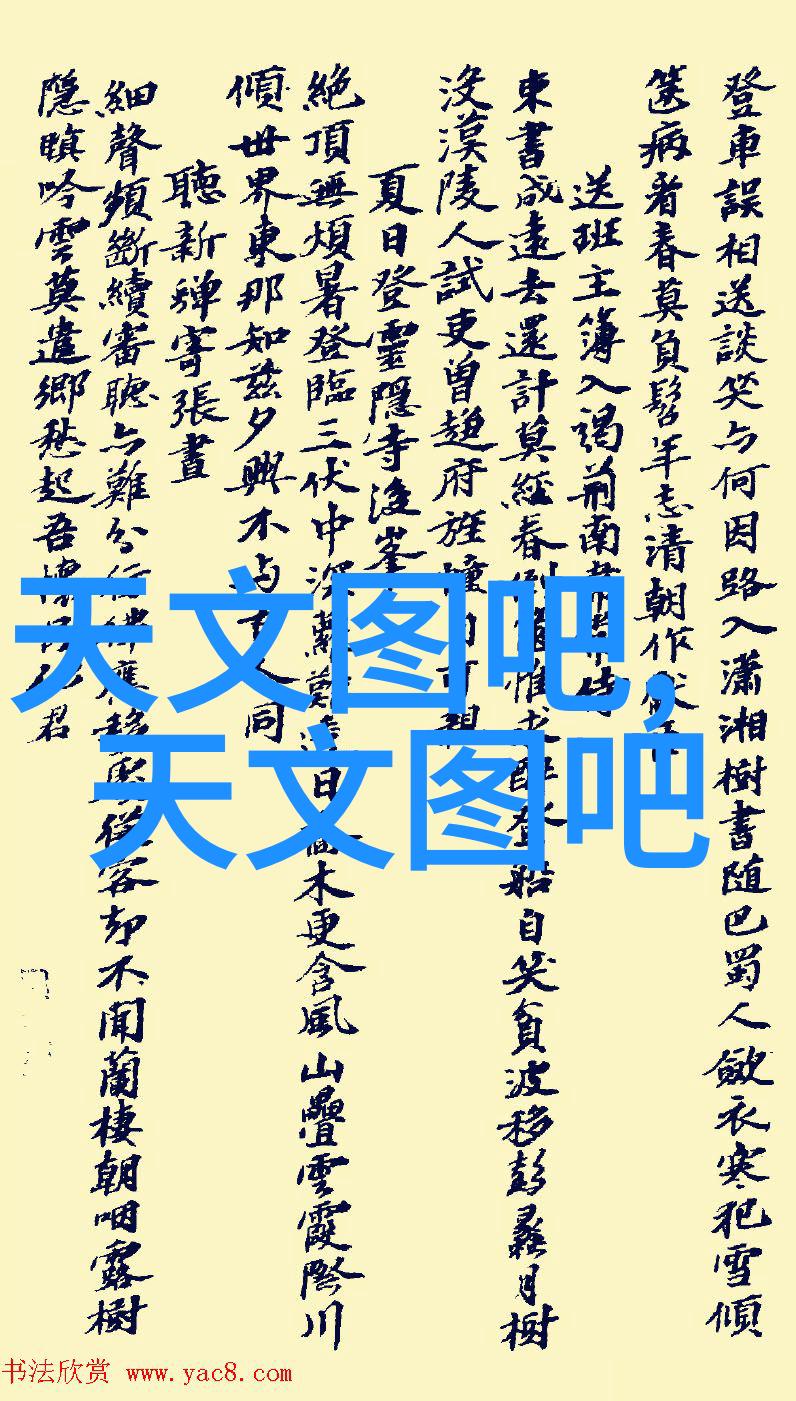 登車誤相送談笑亦何因路入瀟湘樹書隨巴蜀人斂衣寒犯雪傾
篋病看春莫負髫年志清朝作
送班主簿入謁荊南
東書成遠去還計莫經春倒 惟求醉登船自笑貧波移彭蠡月樹
沒漢陵人試吏曾趨府旌幢 可親
夏日登靈隱寺後峯
絕頂無煩暑登臨三伏中深 日 木更含風山疊雲霞際川
傾世界東那知茲夕興不與 人同
聽新蟬寄張晝
細聲頻斷續審聽亦難分 應移 從客却不聞蘭棲朝咽露樹
隱暝吟雲莫遣鄉愁起吾懷 君
天文图吧,
天文图吧
书法欣赏 www.yac8.com